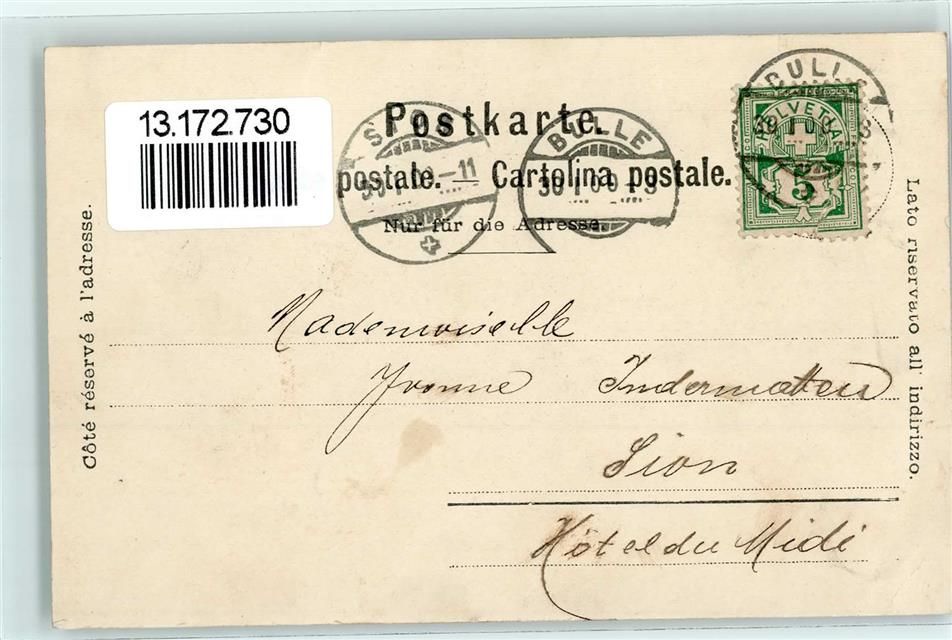 13.172.730
Postkarte.
postale. — Cartolina postale.
Nur für die Adresse.
BULLE
HELVETIA
5
Côté réservé à l'adresse.
Lato riservato all' indirizzo.
Mademoiselle
Yvonne Indermatten
Sion
Hôtel du Midi